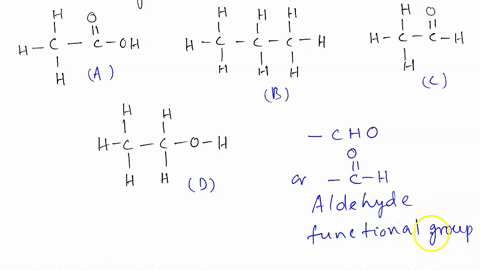 H O
H - C - C - OH
H
(A)
H H H
H - C - C - C - H
H H H
(B)
H O
H - C - C - H
H
(C)
H H
H - C - C - O - H
H H
(D)
- CHO
O
or - C - H
Aldehyde
functional group